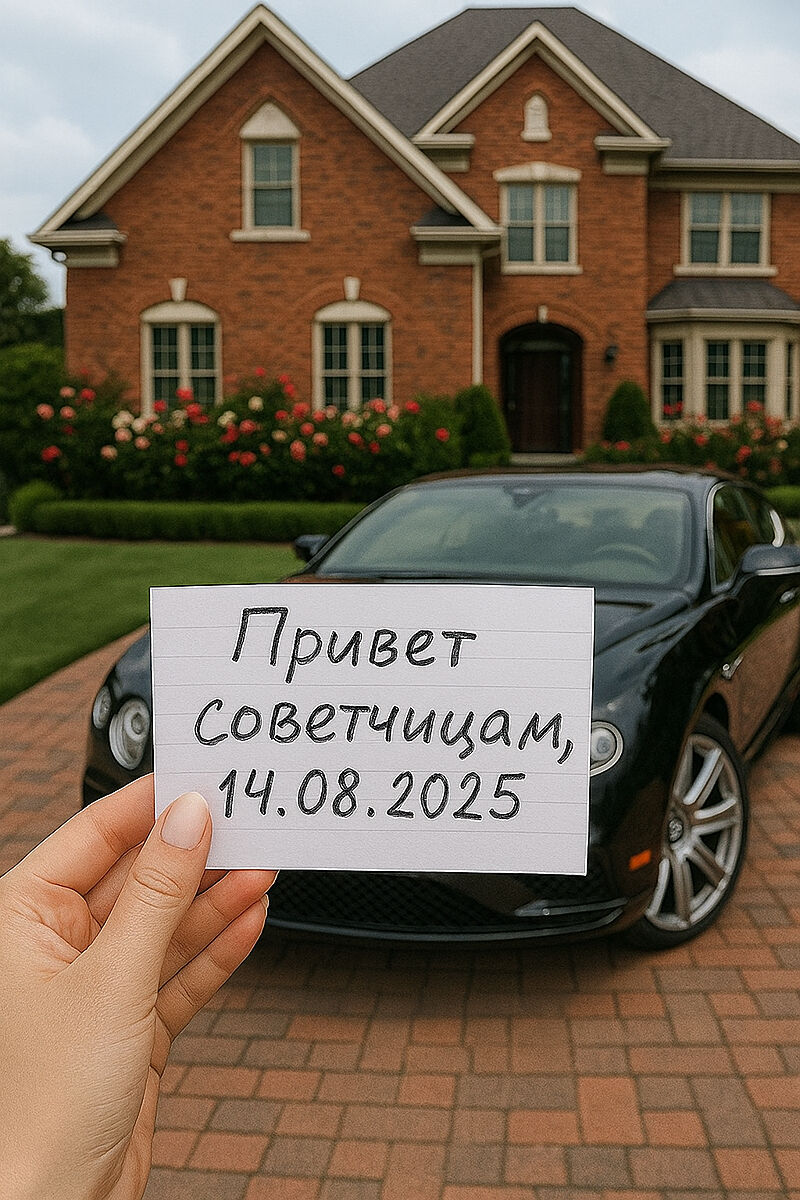 Привет
советчицам,
14.08.2025